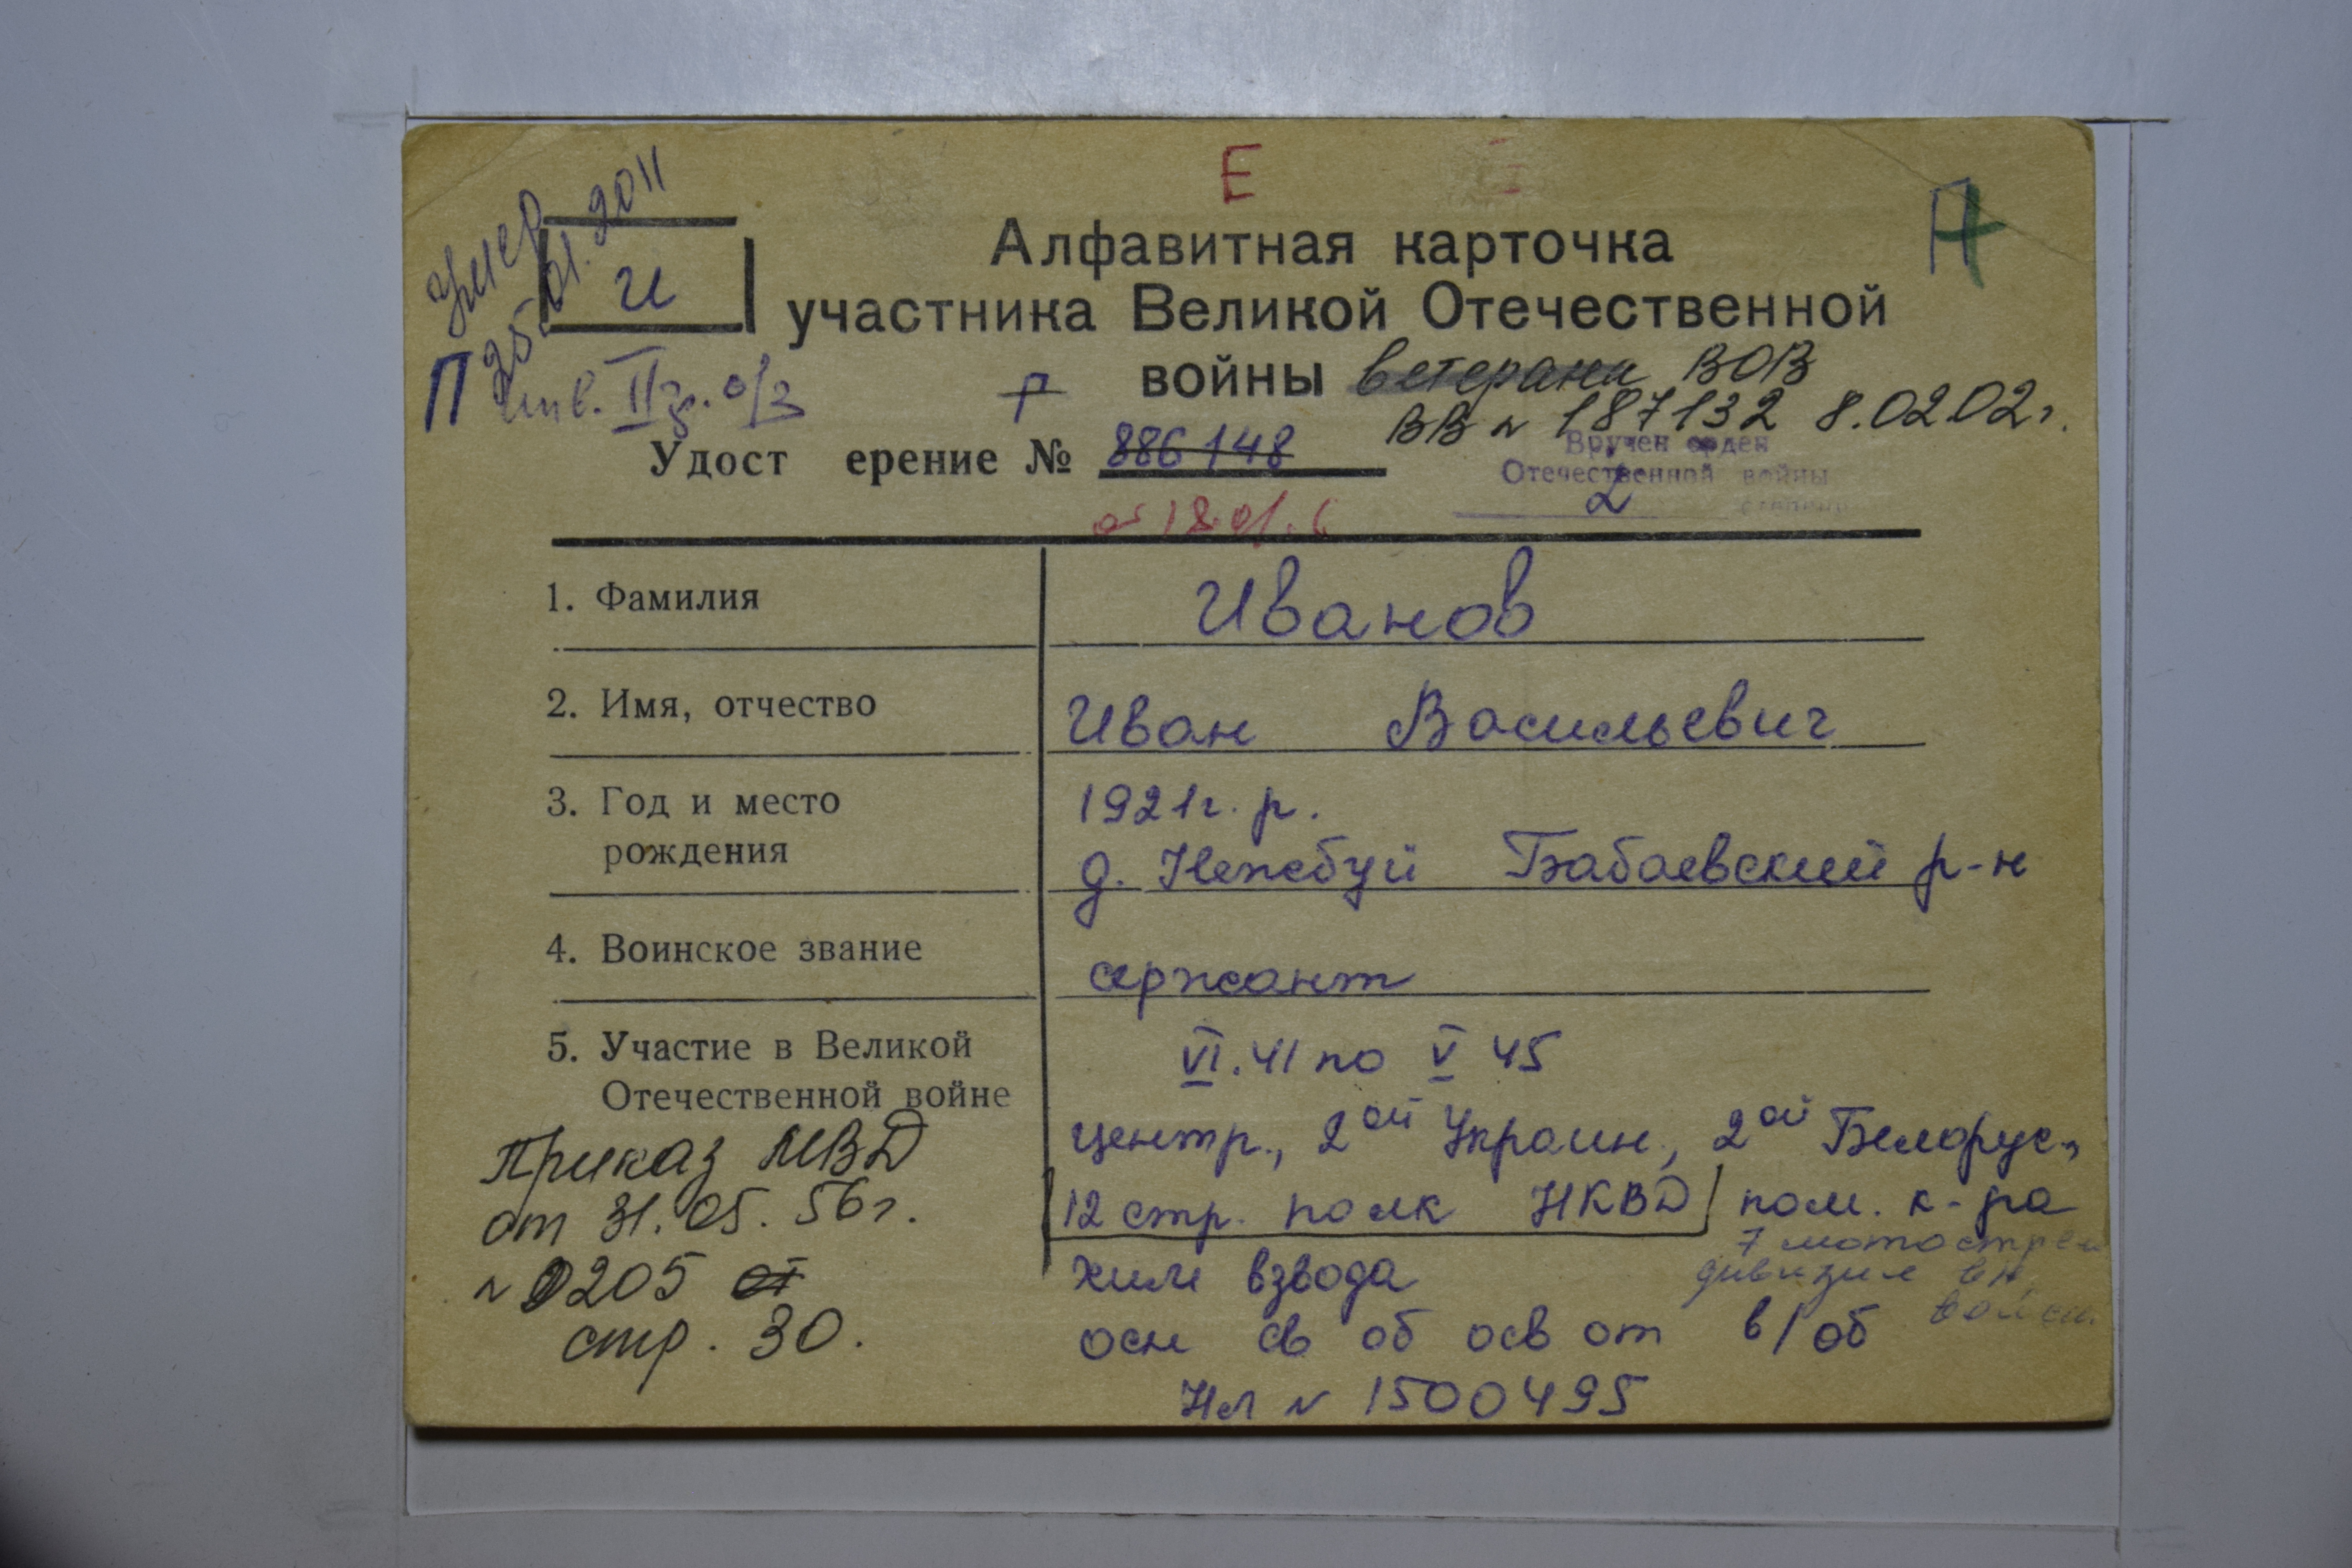 Е
Умер
25.01.2011
и
П
инв. II г. о/з
Алфавитная карточка
участника Великой Отечественной
войны ветерана ВОВ
ВВ № 187132 8.02.02г.
Удост ерение № 886148
от 18.01.
Вручен орден
Отечественной войны
2 степени
1. Фамилия
Иванов
2. Имя, отчество
Иван Васильевич
3. Год и место
рождения
1921г. р.
д. Нежбуй Бабаевский р-н
4. Воинское звание
сержант
5. Участие в Великой
Отечественной войне
VI.41 по V 45
центр., 2ой Украин, 2ой Белорус.,
12 стр. полк НКВД пом. к-ра
7 мотострел
дивизия вн
войск
хим взвода
осн св об осв от в/об
НЛ № 1500495
Приказ МВД
от 31.05.56г.
№ 0205 от
стр. 30.